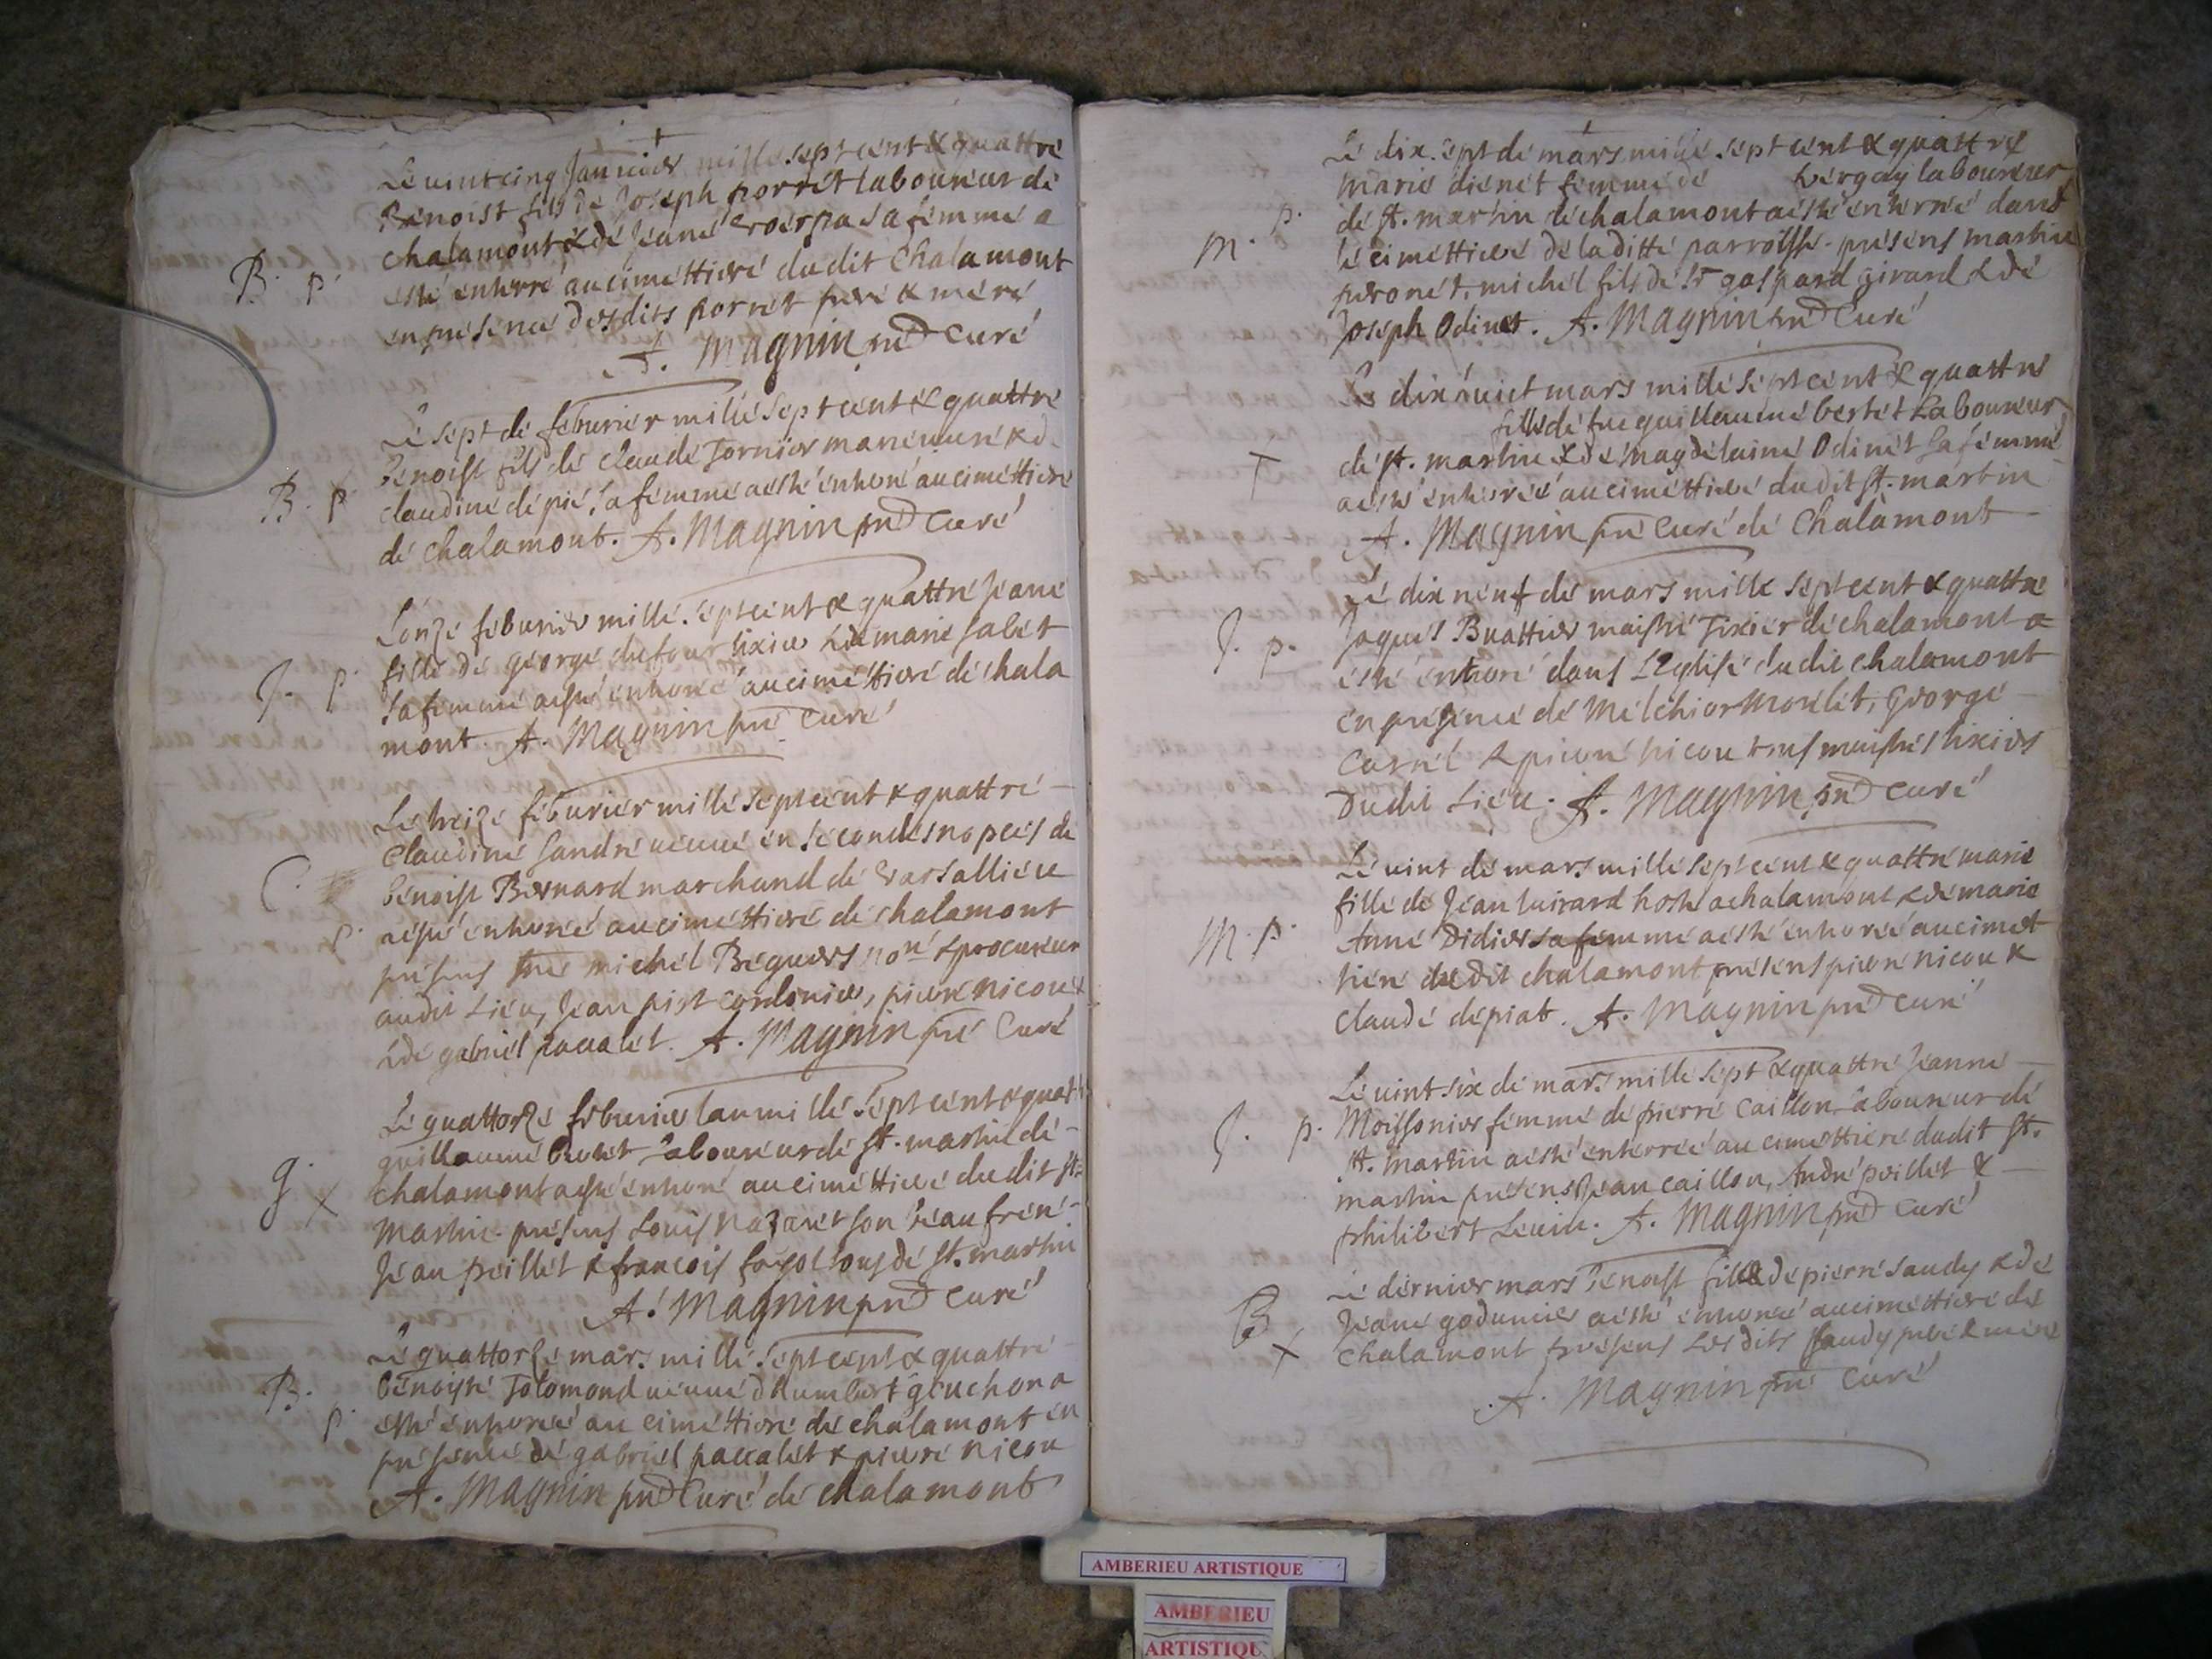 Le vint cinq Januier mille sept cent & quattre
Benoist fils de Joseph porret laboureur de
chalamont & de Jeane sa femme a
B. p. esté enterré au cimettiere dudit Chalamont
en presence desdits porret pere & mere
A. Magnin pred Curé
Le sept de feburier mille sept cent & quattre
Benoist fils de claude Tornier & de
B. p. claudine depié sa femme a esté enterré au cimettiere
de chalamont. A. Magnin pred Curé
L'onze feburier mille sept cent & quattre Jeane
fille de george dufour tixier & de marie sabet
J. p. sa femme a esté enterré au cimettiere de chala
mont. A. Magnin pre Curé
Le treize feburier mille sept cent & quattre
Claudine Sandre veuve en secondes nopces de
C. benoist Bernard marchand de
p. a esté enterré au cimettiere de chalamont
presens michel Beguers & procureur
audit Lieu, Jean pist cordonier, pierre nicou
& de gabriel paccalet. A. Magnin pre Curé
Le quattorze feburier l'an mille sept cent & quatt
guillaume Laboureur de st. martin de
g. x chalamont a esté enterré au cimettiere dudit st.
Martin. presens Louis Nazaret son beaufrere
Jean peillet & francois tous de st. martin
A. Magnin pred Curé
Le quattorze mars mille sept cent & quattre
B. benoiste Tolomond veuve d'humbert gouchon a
p. esté enterreé au cimettiere de chalamont en
presence de gabriel paccalet & pierre nicou
A. Magnin pred Curé de chalamont
Le dix sept de mars mille sept cent & quattre
marie dienet femme de vergay laboureur
m. p. de st. martin de chalamont a esté enterré dans
le cimettiere de laditte parroisse. presens martin
peronet, michel fils de sr gaspard girard & de
Joseph Odinet. A. Magnin pred Curé
Le dix huict mars mille sept cent & quattre
fille de feu guillaume bertet Laboureur
T de st. martin & de magdelaine Odinet sa femme
a esté enterreé au cimettiere dudit st. martin
A. Magnin pre Curé de Chalamont
Le dix neuf de mars mille sept cent & quattre
J. p. Jaques Buattier maistre Tixier de chalamont a
esté enterré dans L'Eglise dudit chalamont
en presence de Melchior Moulet, George
Carrel & pierre nicou tous maistres tixiers
Dudit Lieu. A. Magnin pred Curé
Le vint de mars mille sept cent & quattre marie
fille de Jean luirard hoste a chalamont & de marie
M. p. Anne Didier sa femme a esté enterreé au cimet
tiere dudit chalamont presens pierre nicou &
claude depiat. A. Magnin pred Curé
Le vint six de mars mille sept & quattre Jeanne
J. p. Moissonier femme de pierre Caillon laboureur de
st. martin a esté enterreé au cimettiere dudit st.
martin presens Jean caillon, André peillet &
philibert Levin. A. Magnin pred Curé
Le dernier mars Benoist fille de pierre saudy & de
B x Jeane godunier a esté enterreé au cimettiere de
chalamont presens Lesdits saudy pere & mere
A. Magnin pre Curé
AMBERIEU ARTISTIQUE
AMBERIEU
ARTISTIQU